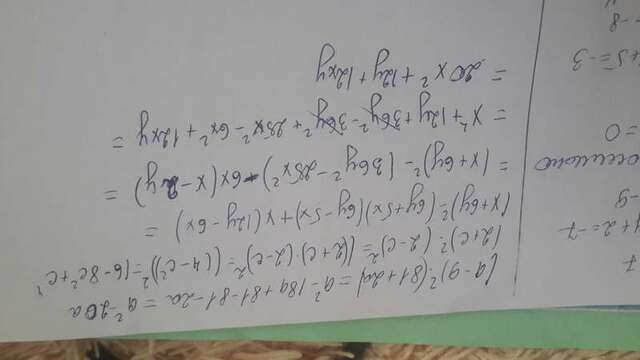 (a-9)²-(81+2a)=a²-18a+81-81-2a=a²-20a
(2+c)²·(2-c)²=((2+c)·(2-c)²=((4-c²))²=16-8c²+c⁴
(x+6y)²-(6y+5x)(6y-5x)+x(12y-6x)=
=(x+6y)²-(36y²-25x²)+6x(x-2y)=
=x²+12y+36y²-36y²+25x²-6x²+12xy=
=20x²+12y+12xy
7
+2=-7
-9
=0
+5=-3
-8